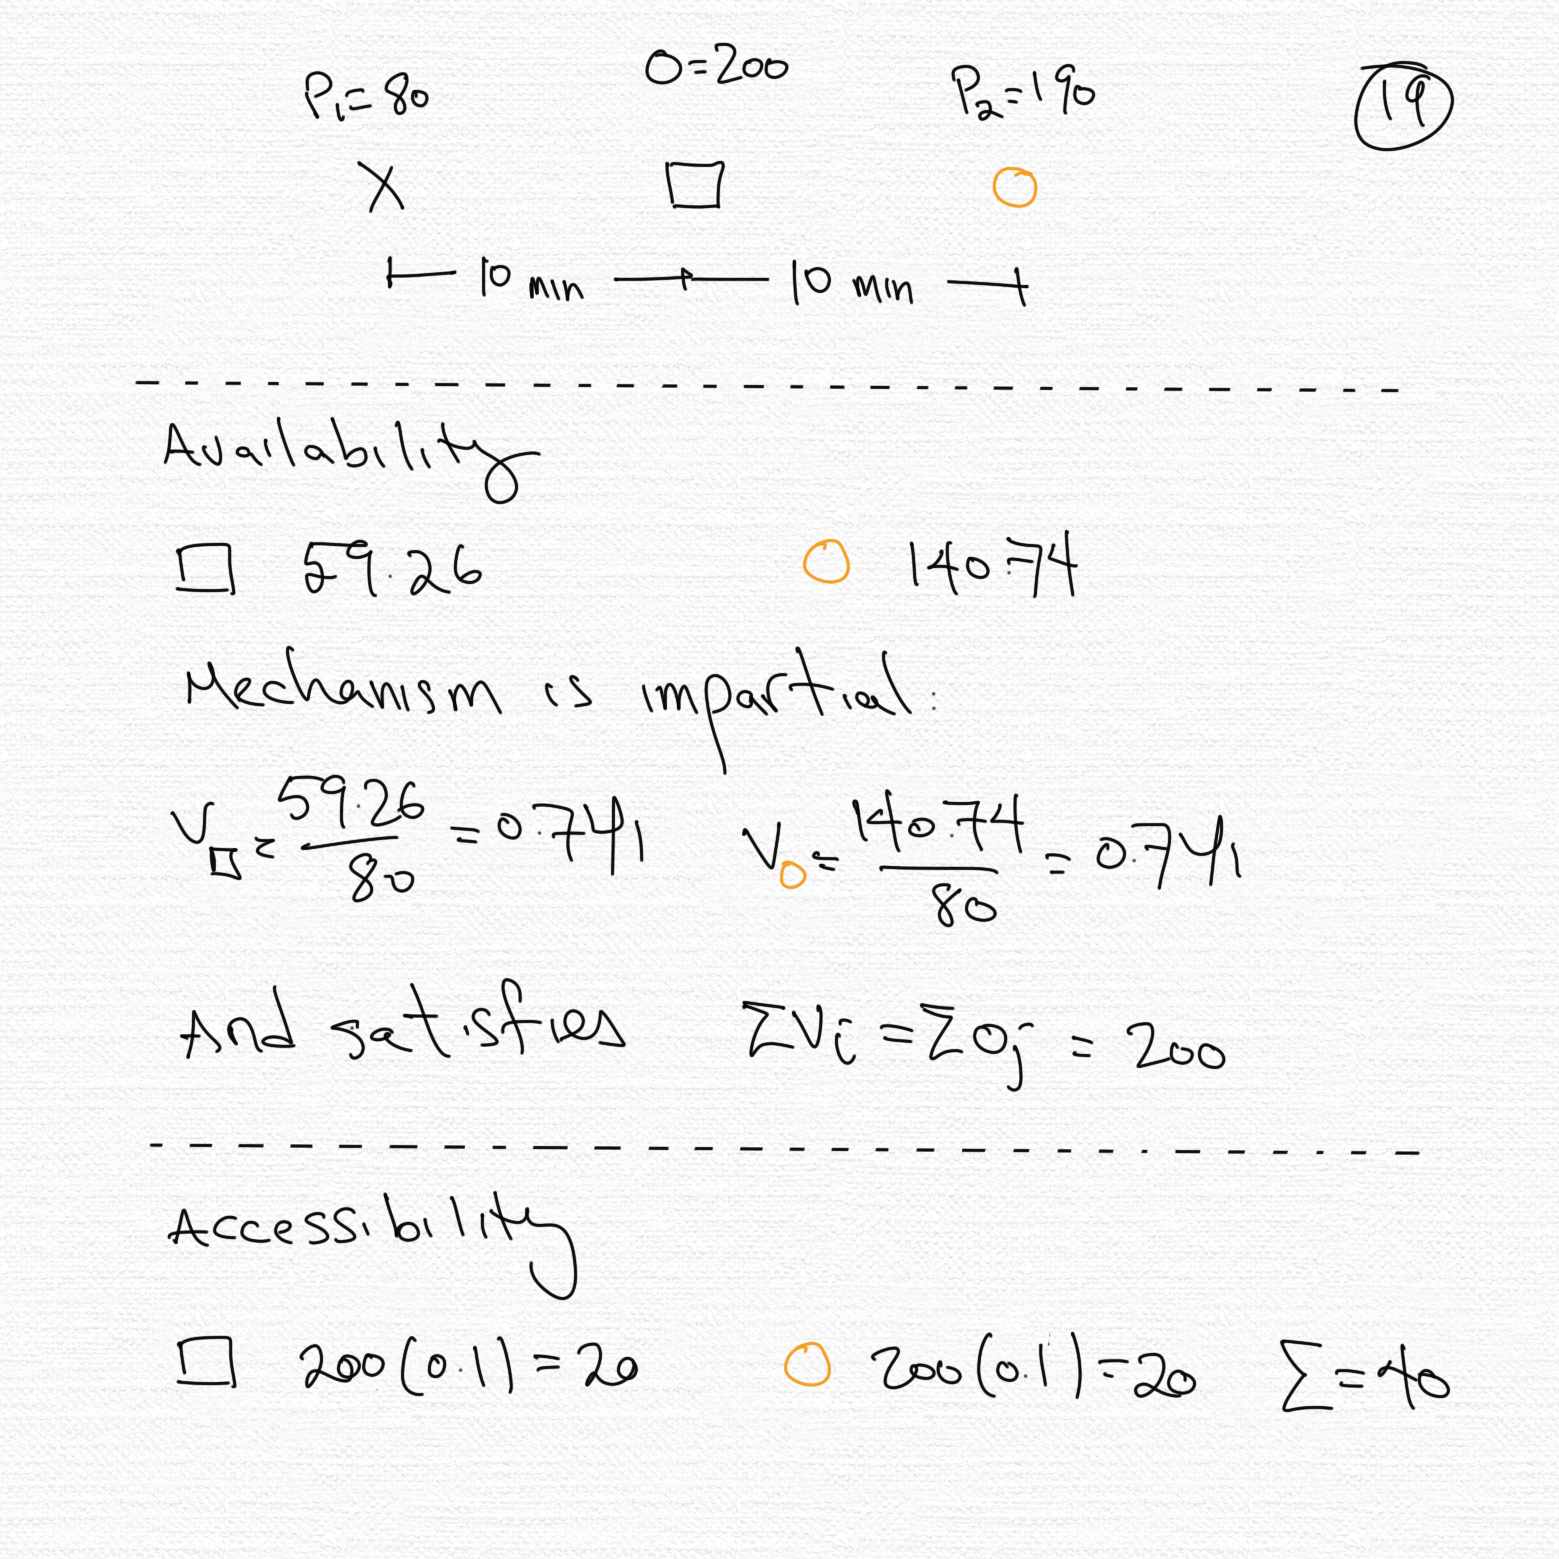 P₁=80 O=200 P₂=190 19
X □ ○
10 min 10 min
Availability
□ 59.26 ○ 140.74
Mechanism is impartial:
V□ = 59.26/80 = 0.741 V○ = 140.74/80 = 0.741
And satisfies ΣVi = ΣOj = 200
Accessibility
□ 200(0.1)=20 ○ 200(0.1)=20 Σ=40